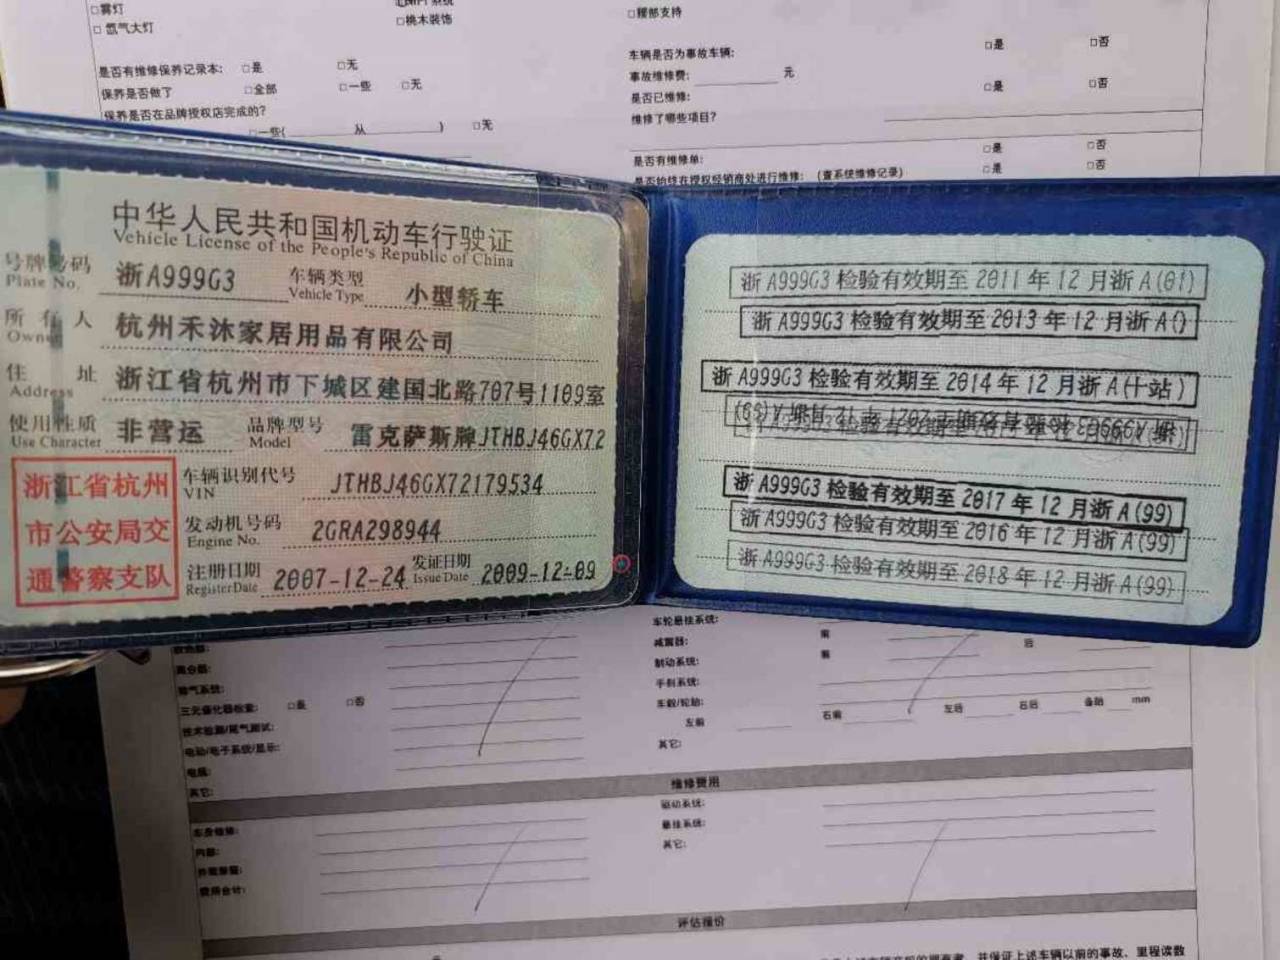 □雾灯
□氙气大灯
□桃木装饰
□腰部支持
是否有维修保养记录本: □是 □无
保养是否做了 □全部 □一些 □无
保养是否在品牌授权店完成的?
□一些( 从 ) □无
车辆是否为事故车辆: □是 □否
事故维修费: 元
是否已维修: □是 □否
维修了哪些项目?
是否有维修单: □是 □否
是否始终在授权经销商处进行维修: (查系统维修记录) □是 □否
中华人民共和国机动车行驶证
Vehicle License of the People's Republic of China
号牌号码 浙A999G3 车辆类型 小型轿车
Plate No. Vehicle Type
所有人 杭州禾沐家居用品有限公司
Owner
住址 浙江省杭州市下城区建国北路707号1109室
Address
使用性质 非营运 品牌型号 雷克萨斯牌JTHBJ46GX72
Use Character Model
浙江省杭州
市公安局交
通警察支队
车辆识别代号 JTHBJ46GX72179534
VIN
发动机号码 2GRA298944
Engine No.
注册日期 2007-12-24 发证日期 2009-12-09
Register Date Issue Date
浙A999G3检验有效期至2011年12月浙A(01)
浙A999G3检验有效期至2013年12月浙A()
浙A999G3检验有效期至2014年12月浙A(十站)
浙A999G3检验有效期至2021年12月浙A(99)
浙A999G3检验有效期至2017年12月浙A(99)
浙A999G3检验有效期至2016年12月浙A(99)
浙A999G3检验有效期至2018年12月浙A(99)
离合器:
排气系统:
三元催化器检查: □是 □否
技术检测/尾气测试:
电动/电子系统/显示:
电瓶:
其它:
车轮悬挂系统:
减震器: 前 后
制动系统: 前
手刹系统:
车毂/轮胎:
左前 右前 左后 右后 备胎 mm
其它:
维修费用
车身维修:
内部:
费用合计:
驱动系统:
悬挂系统:
其它:
评估报价
并保证上述车辆以前的事故、里程读数